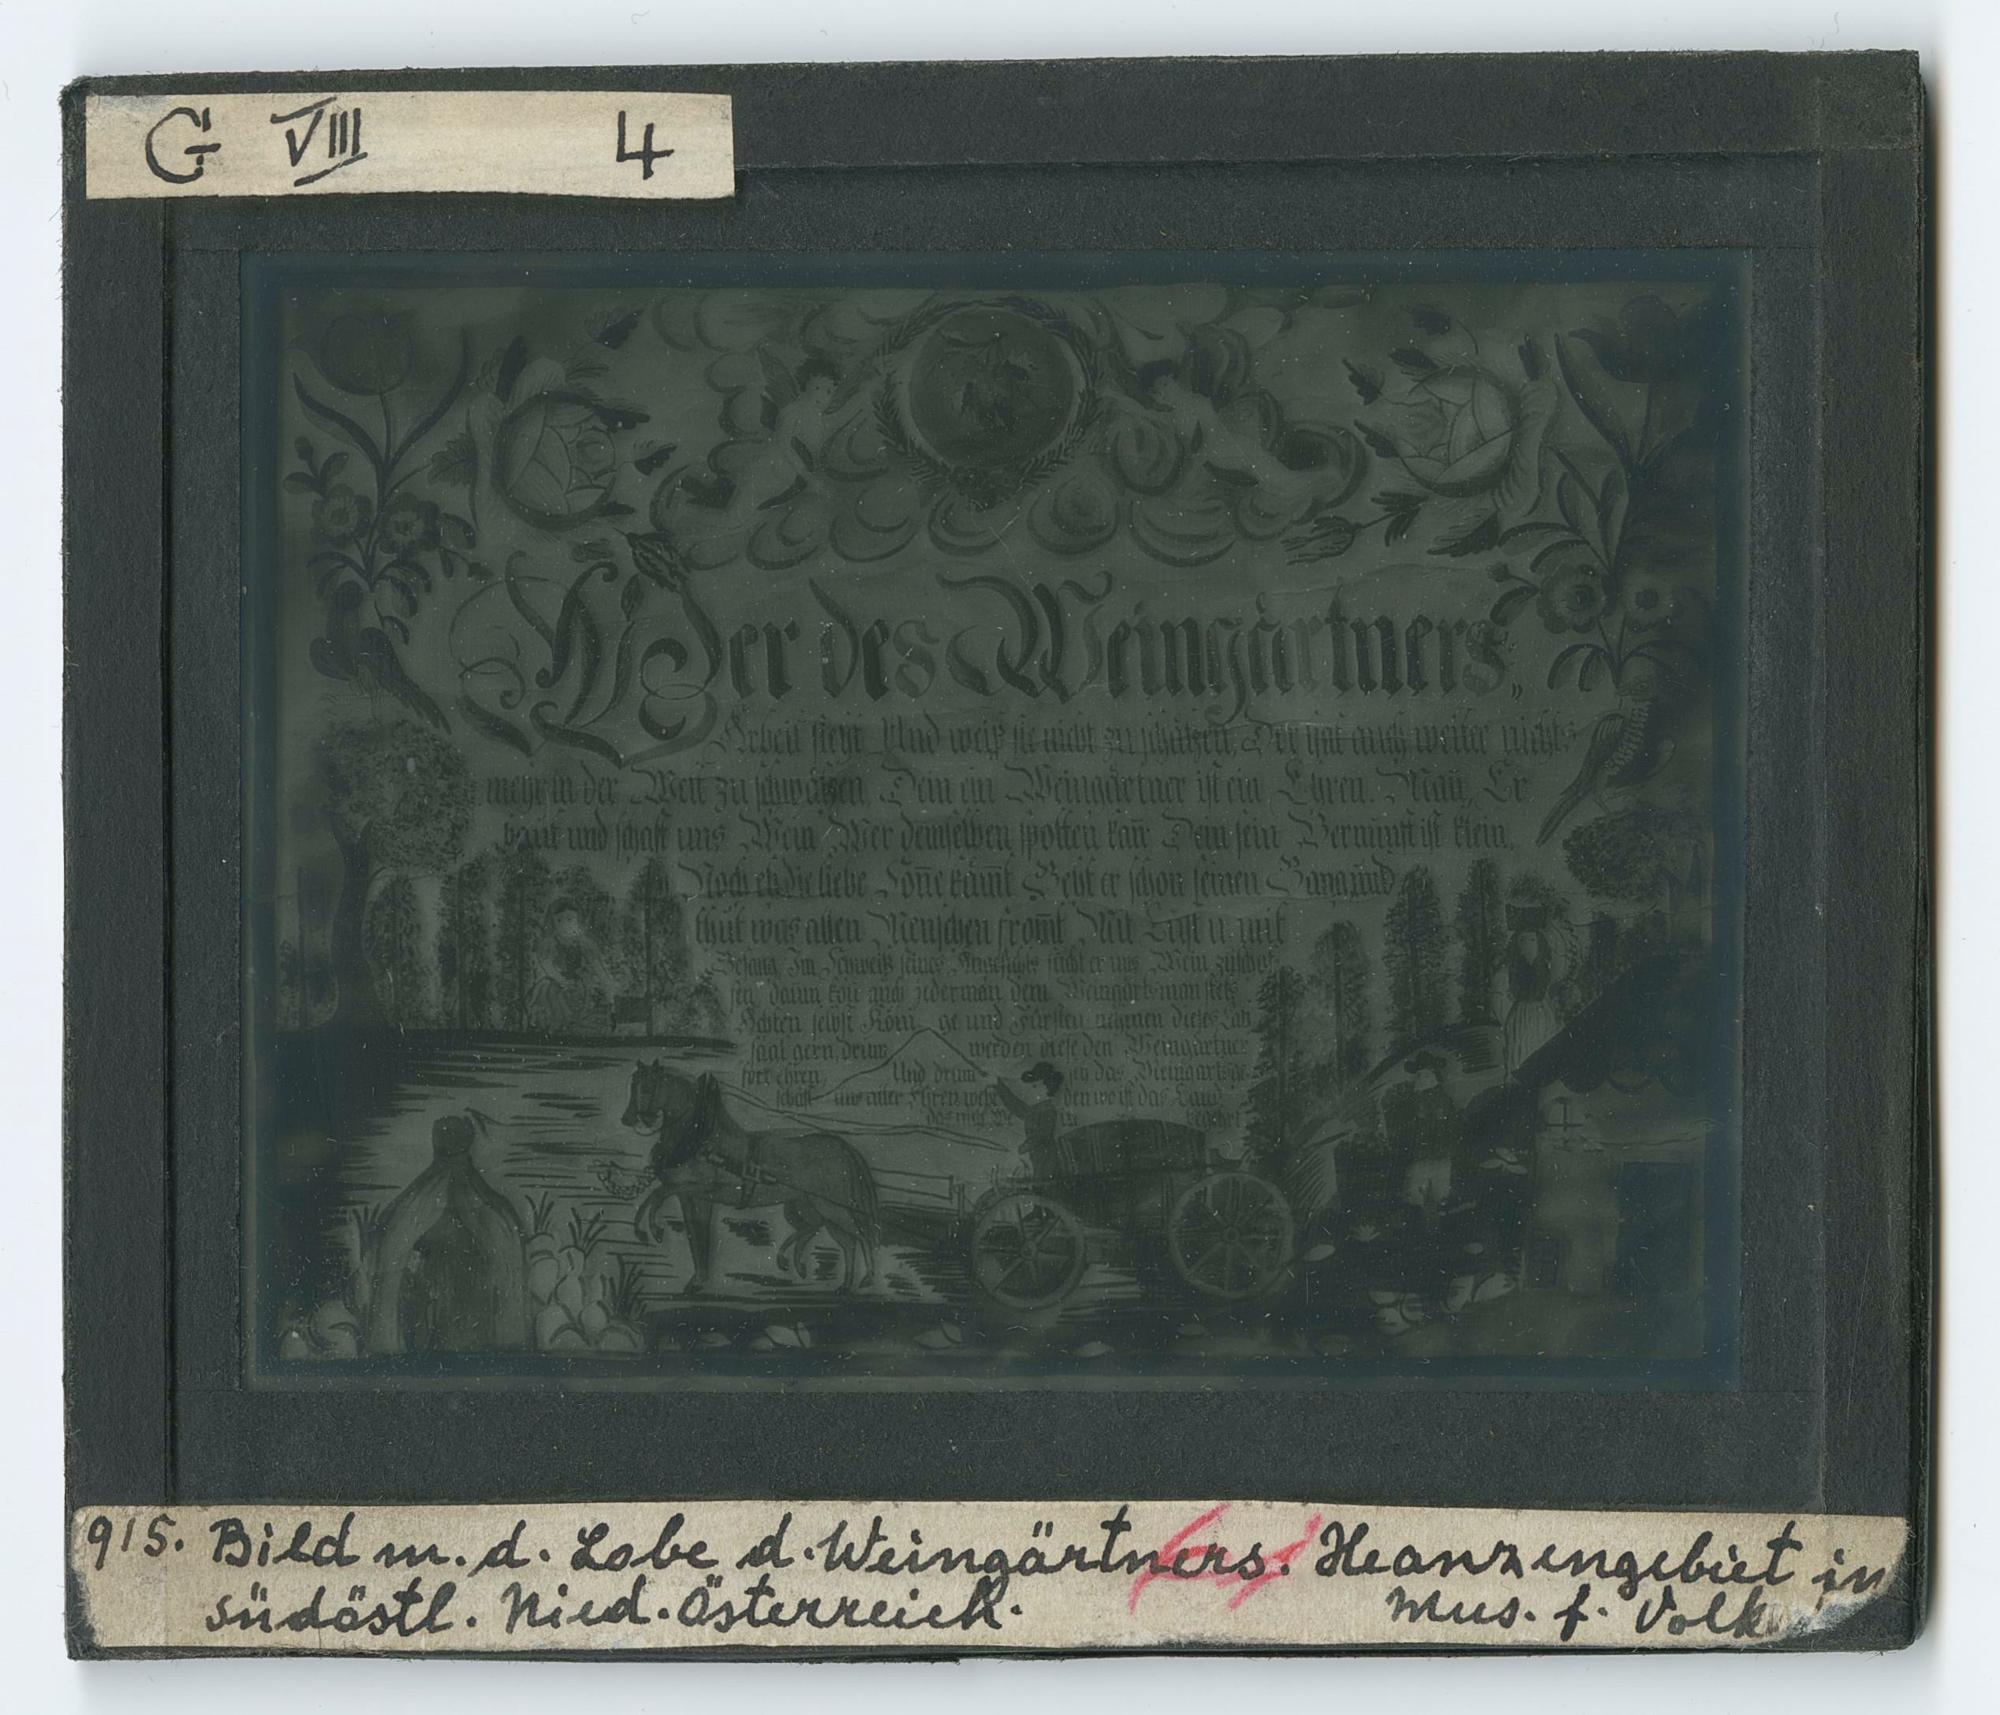 G VIII 4
Wer des Weingärtners„
Arbeit sieht Und weiß sie nicht zu schätzen, Der hat auch weiter nichts
mehr in der Welt zu schwätzen, Dein ein Weingärtner ist ein Ehren. Mañ, Er
baut und schaft uns Wein Wer demselben spotten kañ Dem sein Vernunft ist klein,
Noch eh die liebe Soñe kam̃t Geht er schon seinen Gang und
thut was allen Menschen from̃t Mit Lust u. mit
Gesang Im Schweiß seines Angesichts sucht er uns Wein zu schaf
fen, darum kañ auch jederman dem Weingärtsman stets
Achten selbst König ge und Fürsten nehmen dieses Lab
saal gern, drum werden diese den Weingärtner
fort ehren, Und drum
schaft mit aller Ehren den weil das Land
915. Bild m. d. Lobe d. Weingärtners. Heanzengebiet in
südöstl. Nied. Österreich. Mus. f. Volk